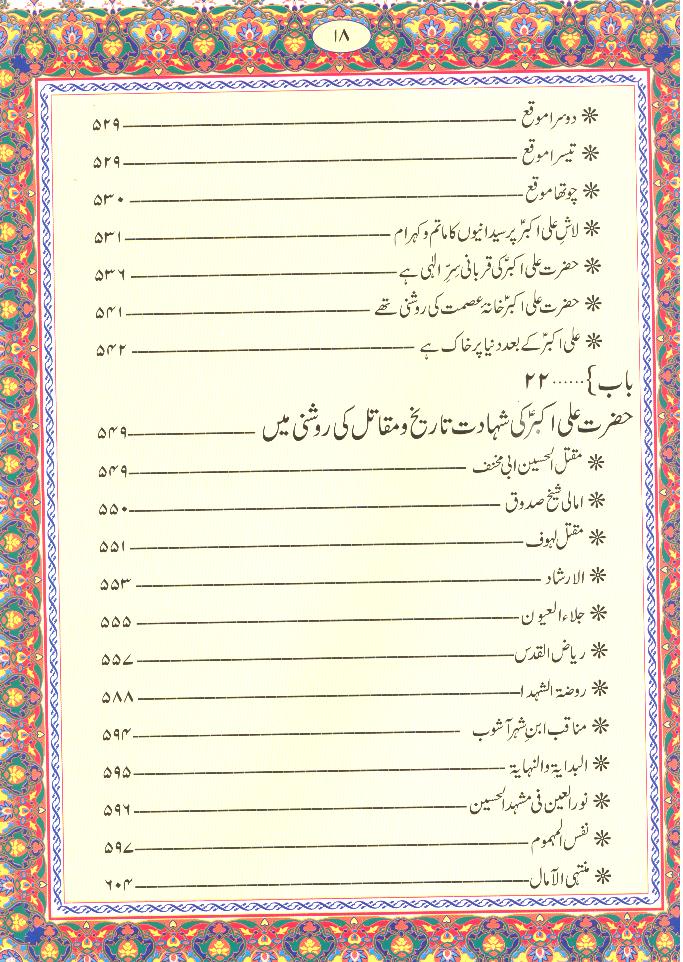 ۱۸
❋ دوسرا موقع ۵۲۹
❋ تیسرا موقع ۵۲۹
❋ چوتھا موقع ۵۳۰
❋ لاشِ علی اکبرؑ پر سیدانیوں کا ماتم و کہرام ۵۳۱
❋ حضرت علی اکبرؑ کی قربانی سِرِّ الٰہی ہے ۵۳۶
❋ حضرت علی اکبرؑ خانۂ عصمت کی روشنی تھے ۵۴۱
❋ علی اکبرؑ کے بعد دنیا پر خاک ہے ۵۴۲
باب}......۲۲
حضرت علی اکبرؑ کی شہادت تاریخ و مقاتل کی روشنی میں ۵۴۹
❋ مقتل الحسین ابی مخنف ۵۴۹
❋ امالی شیخ صدوق ۵۵۰
❋ مقتل لہوف ۵۵۱
❋ الارشاد ۵۵۳
❋ جلاء العیون ۵۵۵
❋ ریاض القدس ۵۵۷
❋ روضۃ الشہدا ۵۸۸
❋ مناقب ابنِ شہر آشوب ۵۹۴
❋ البدایۃ والنہایۃ ۵۹۵
❋ نور العین فی مشہد الحسین ۵۹۶
❋ نفس المہموم ۵۹۷
❋ منتہی الآمال ۶۰۴